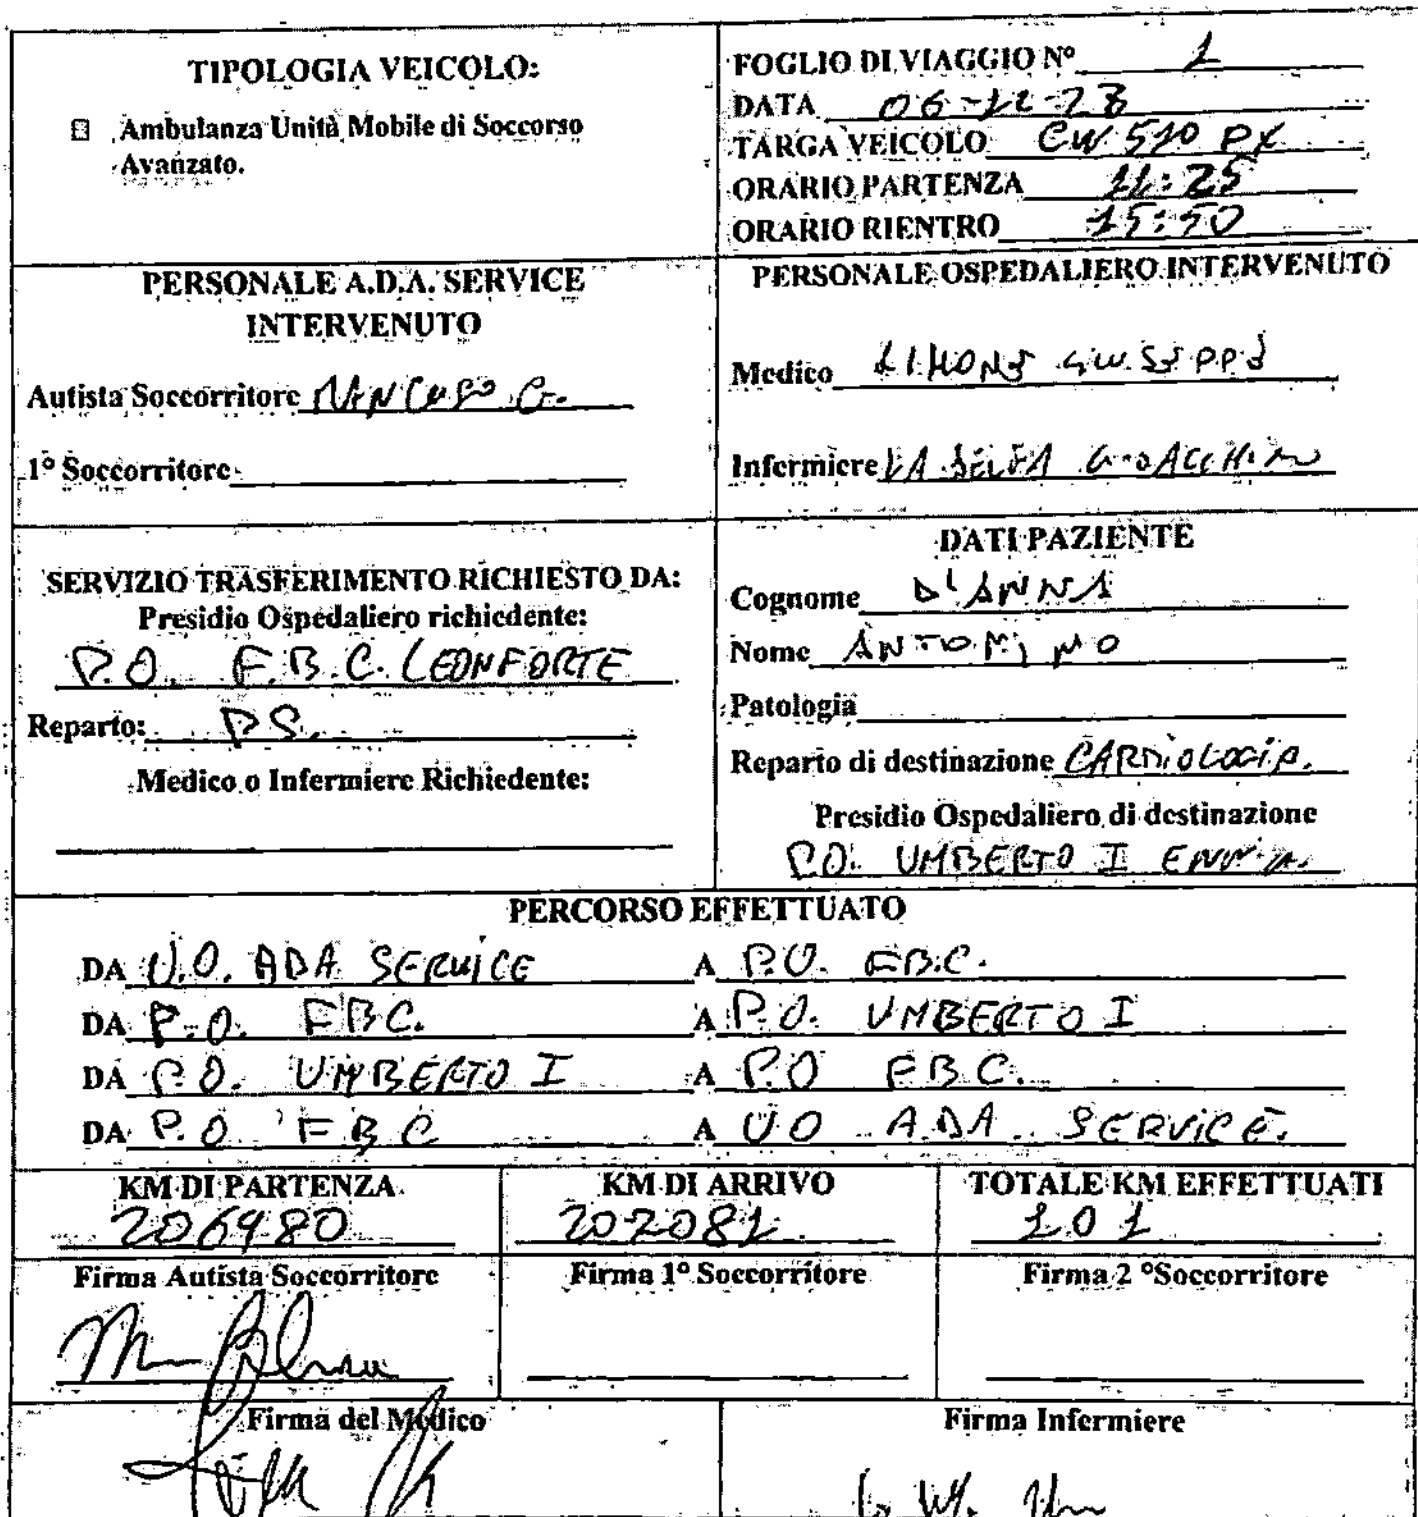 TIPOLOGIA VEICOLO:
Ambulanza Unità Mobile di Soccorso
Avanzato.
FOGLIO DI VIAGGIO N° 1
DATA 06-12-23
TARGA VEICOLO CW 510 PX
ORARIO PARTENZA 11:25
ORARIO RIENTRO 15:50
PERSONALE A.D.A. SERVICE
INTERVENUTO
Autista Soccorritore MANCUSO G.
1° Soccorritore
PERSONALE OSPEDALIERO INTERVENUTO
Medico LIMONE GIUSEPPE
Infermiere LA DELFA GIOACCHINO
SERVIZIO TRASFERIMENTO RICHIESTO DA:
Presidio Ospedaliero richiedente:
P.O. F.B.C. LEONFORTE
Reparto: P.S.
Medico o Infermiere Richiedente:
DATI PAZIENTE
Cognome D'ANNA
Nome ANTONINO
Patologia
Reparto di destinazione CARDIOLOGIA.
Presidio Ospedaliero di destinazione
P.O. UMBERTO I ENNA.
PERCORSO EFFETTUATO
DA U.O. ADA SERVICE A P.O. FBC.
DA P.O. FBC. A P.O. UMBERTO I
DA P.O. UMBERTO I A P.O FBC.
DA P.O FBC A UO ADA SERVICE.
KM DI PARTENZA KM DI ARRIVO TOTALE KM EFFETTUATI
206980 207081 101
Firma Autista Soccorritore Firma 1° Soccorritore Firma 2 °Soccorritore
Firma del Medico Firma Infermiere